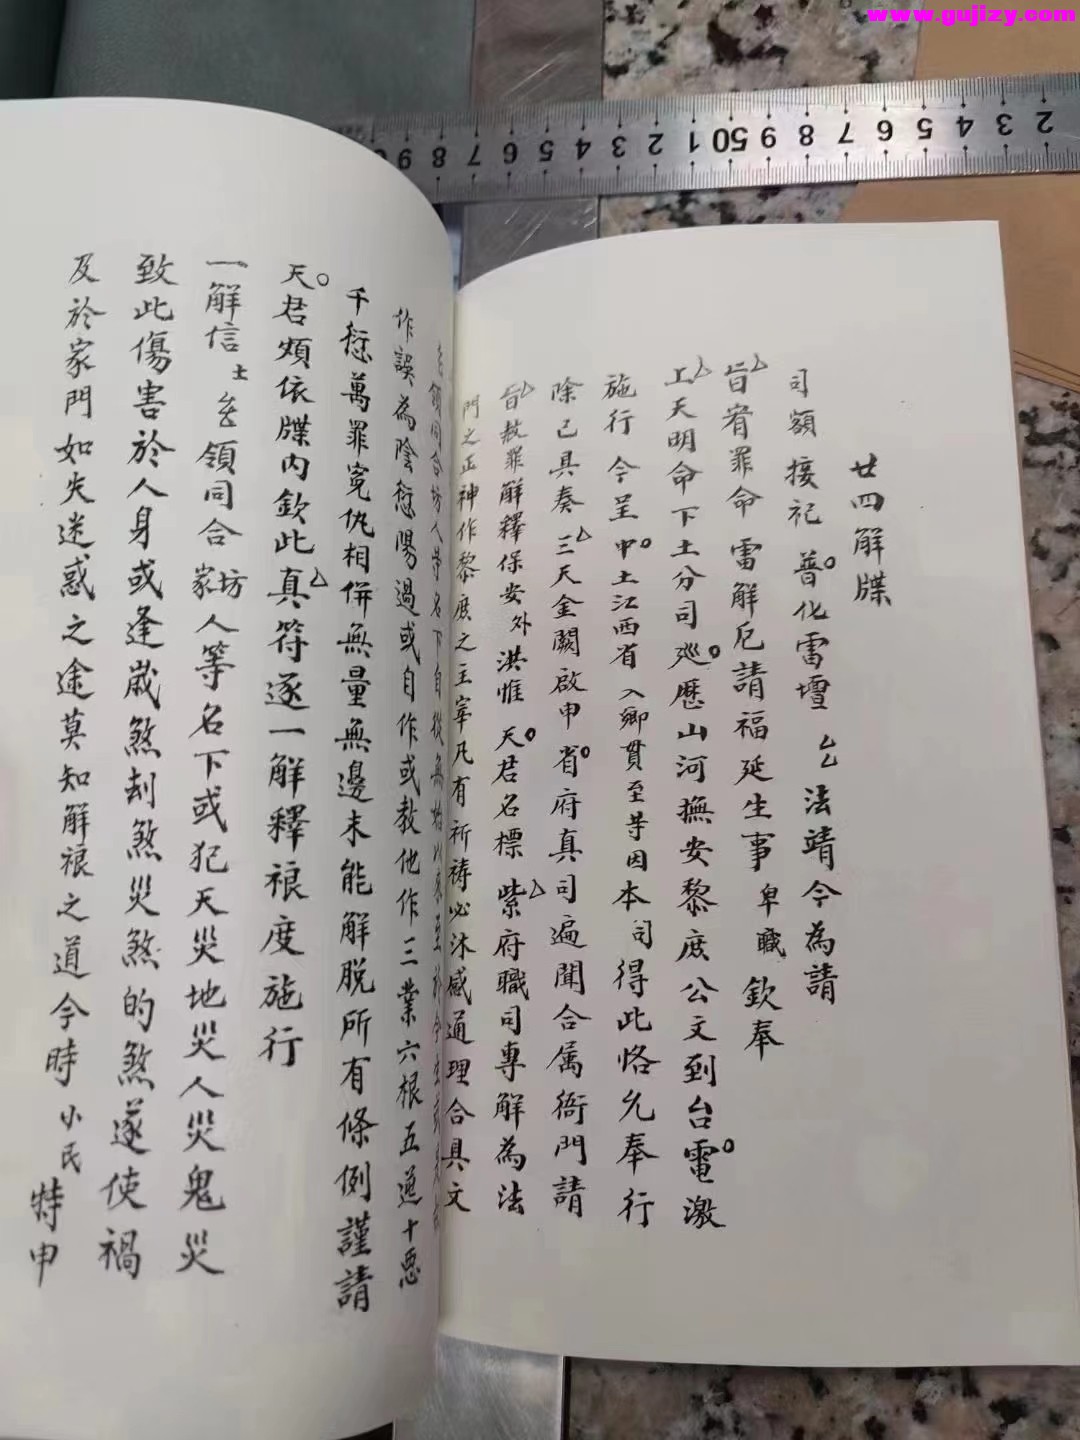 www.gujizy.com
2 3 4 5 6 7 8 9 50 1 2 3 4 5 6 7 8 9
廿四解牒
司額 接祀 普化雷壇 法靖今為請
旨宥罪命 雷解厄請福延生事 卑職 欽奉
上天明命下土分司 巡歷山河撫安黎庶公文到台電激
施行 今呈 中土江西省 入鄉貫至等因本司得此恪允奉行
除已具奏 三天金闕啟申 省府真司遍聞合属衙門請
旨赦罪解釋保安外洪惟 天君名標 紫府職司專解為法
門之正神作黎庶之主宰凡有祈祷必沐感通理合具文
領同合坊人等名下自從無始以來至於今生
作誤為陰愆陽過或自作或教他作三業六根五逆十惡
千愆萬罪寃仇相併無量無邊未能解脱所有條例謹請
天君煩依牒内欽此真符逐一解釋禳度施行
一解信士 領同合家坊人等名下或犯天災地災人災鬼災
致此傷害於人身或逢歲煞刦煞災煞的煞遂使禍
及於家門如失迷惑之途莫知解禳之道今時小民特申